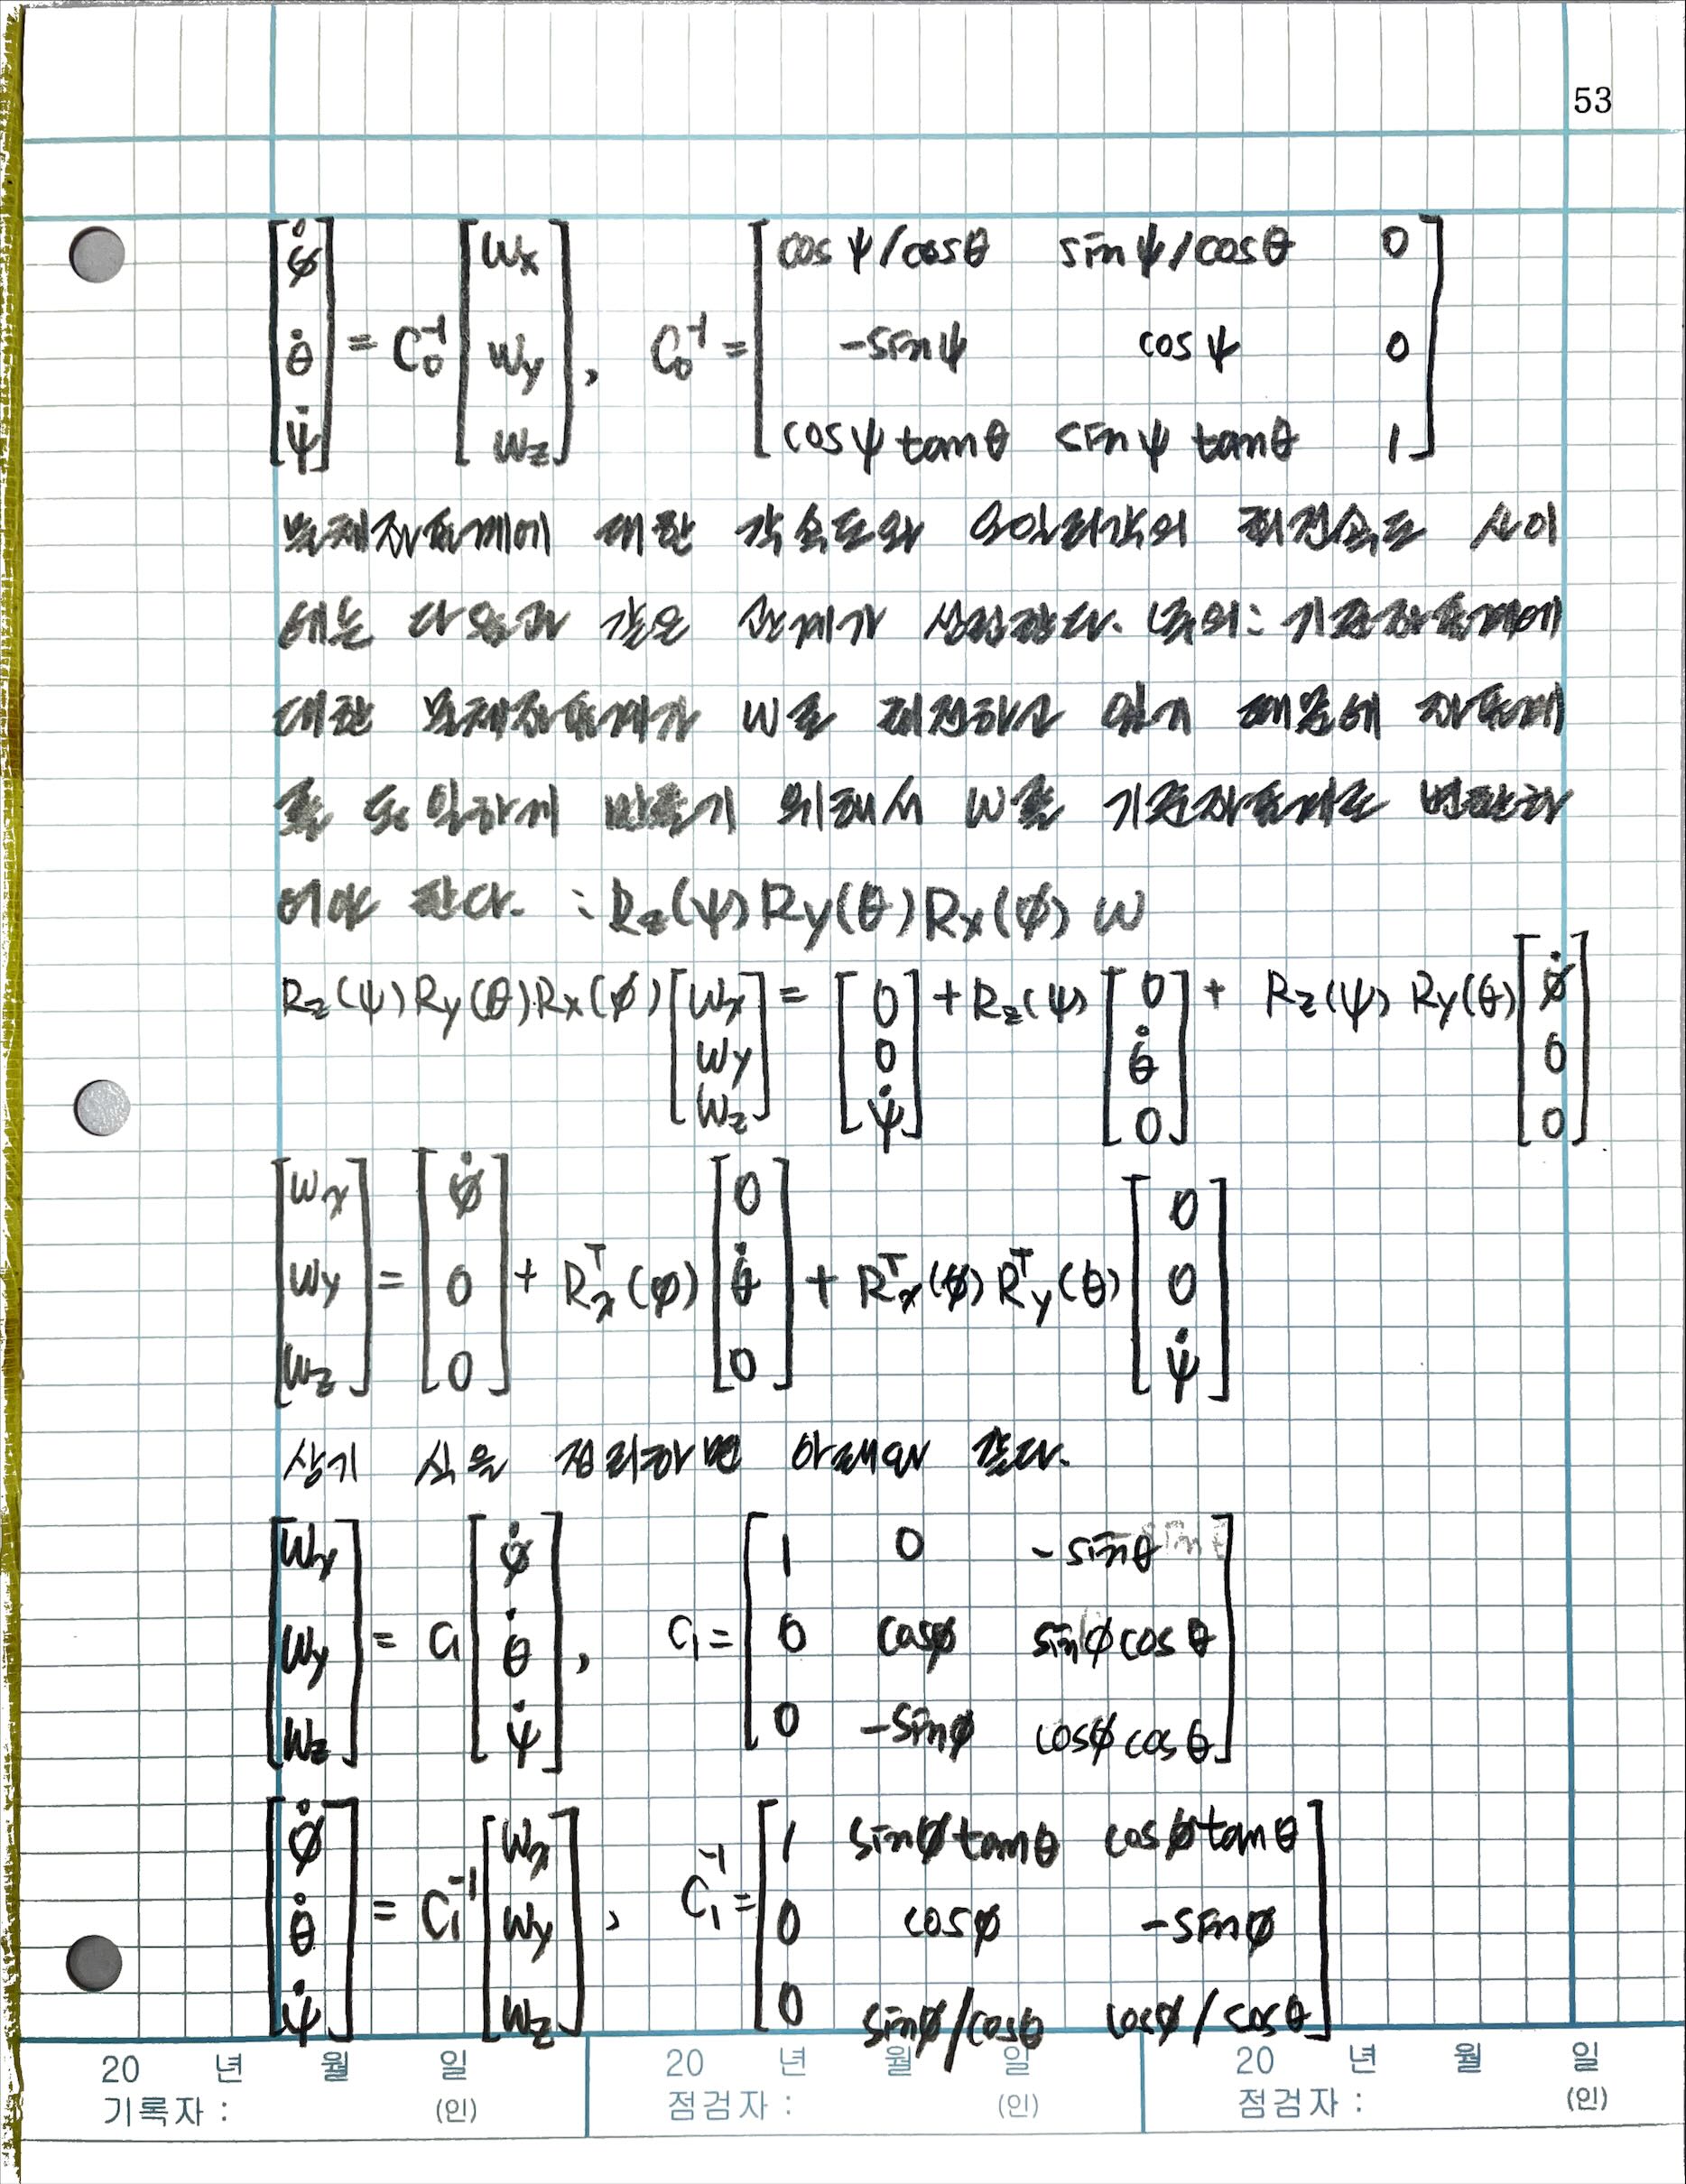 53
[φ̇ θ̇ ψ̇] = C₀⁻¹ [ωx ωy ωz], C₀⁻¹ = [cosψ/cosθ sinψ/cosθ 0
-sinψ cosψ 0
cosψ tanθ sinψ tanθ 1]
물체좌표계에 대한 각속도와 오일러각의 회전속도 사이
에는 다음과 같은 관계가 성립한다. (주의: 기준좌표계에
대한 물체좌표계가 ω로 회전하고 있기 때문에 좌표계
를 동일하게 만들기 위해서 ω를 기준좌표계로 변환하
여야 한다. : Rz(ψ)Ry(θ)Rx(φ) ω
Rz(ψ)Ry(θ)Rx(φ)[ωx ωy ωz] = [0 0 ψ̇] + Rz(ψ)[0 θ̇ 0] + Rz(ψ) Ry(θ)[φ̇ 0 0]
[ωx ωy ωz] = [φ̇ 0 0] + Rxᵀ(φ)[0 θ̇ 0] + Rxᵀ(φ)Ryᵀ(θ)[0 0 ψ̇]
상기 식을 정리하면 아래와 같다.
[ωx ωy ωz] = C₁[φ̇ θ̇ ψ̇], C₁ = [1 0 -sinθ
0 cosφ sinφcosθ
0 -sinφ cosφcosθ]
[φ̇ θ̇ ψ̇] = C₁⁻¹[ωx ωy ωz], C₁⁻¹ = [1 sinφtanθ cosφtanθ
0 cosφ -sinφ
0 sinφ/cosθ cosφ/cosθ]
20 년 월 일 20 년 월 일 20 년 월 일
기록자 : (인) 점검자 : (인) 점검자 : (인)